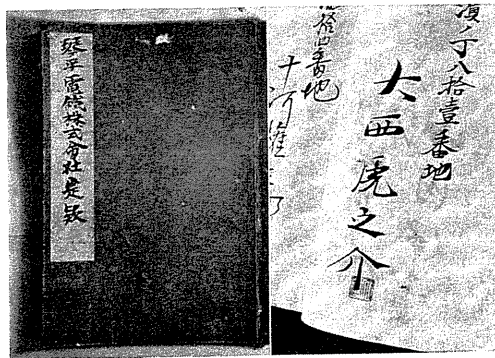 琴平電鐵株式會社定款
濱ノ丁八拾壹番地
大西虎之介
番地
十河